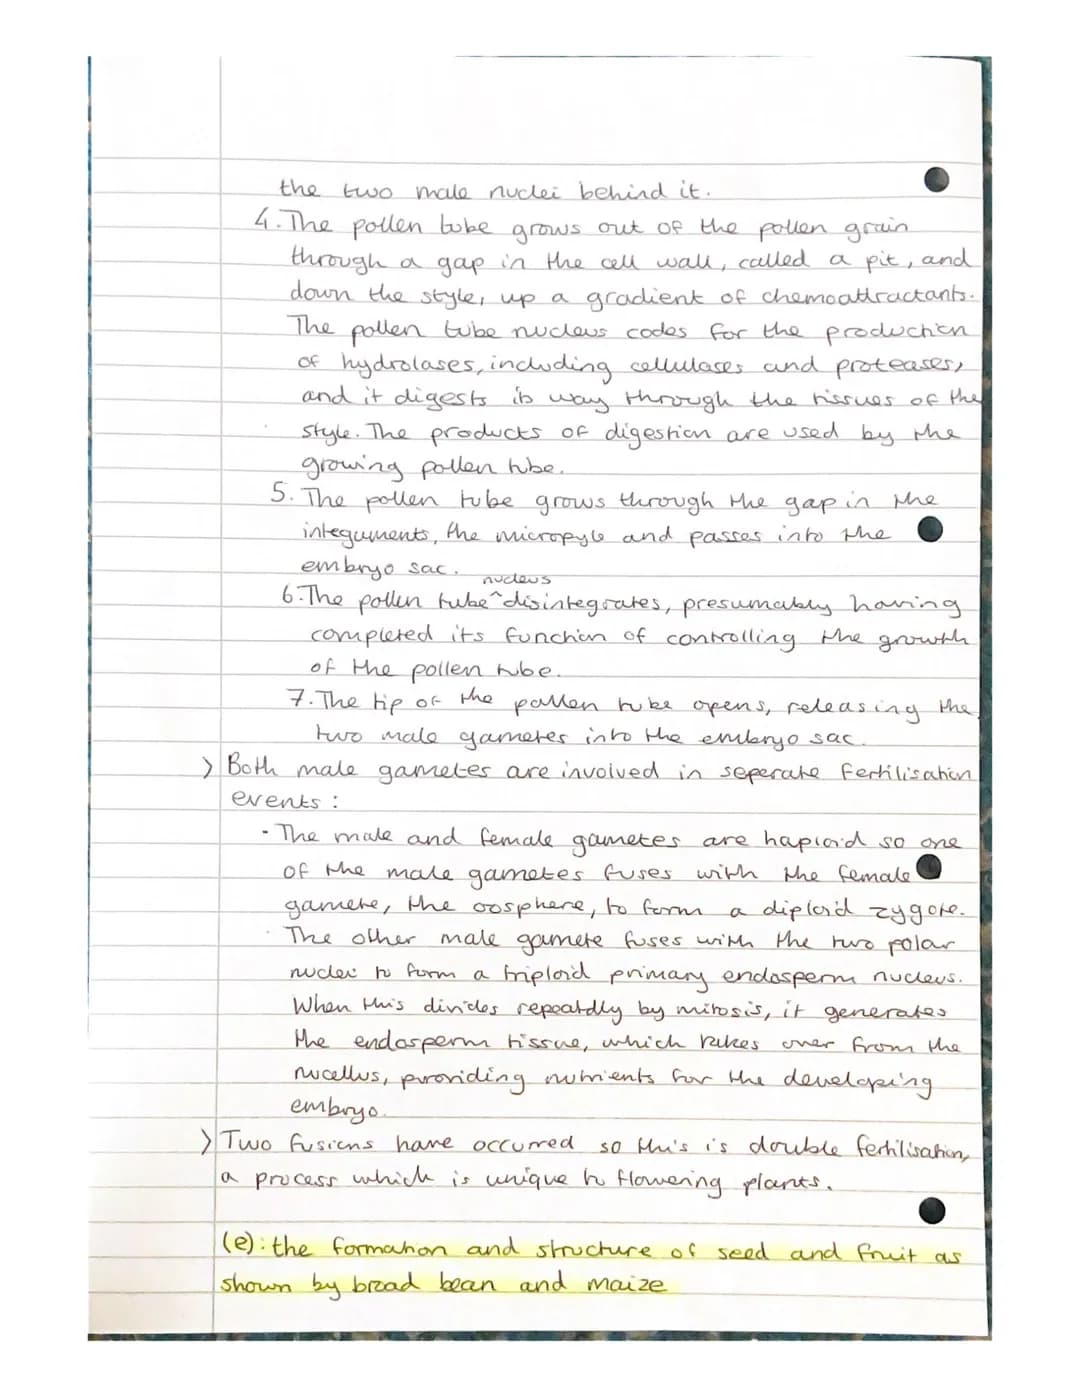 the two male nuclei behind it.
4. The pollen tube grows out of the pollen grain
through a gap in the cell wall, called a pit, and
down the style, up a gradient of chemoattractants.
The pollen tube nucleus codes for the production
of hydrolases, including cellulases and proteases,
and it digests its way through the tissues of the
style. The products of digestion are used by the
growing pollen tube.
5. The pollen tube grows through the gap in the
integuments, the micropyle and passes into the
embryo sac.
nucleus
6. The pollen tube ^ disintegrates, presumably having
completed its function of controlling the growth
of the pollen tube.
7. The tip of the pollen tube opens, releasing the
two male gametes into the embryo sac.
> Both male gametes are involved in seperate fertilisation
events :
- The male and female gametes are haploid so one
of the male gametes fuses with the female
gamete, the oosphere, to form a diploid zygote.
· The other male gamete fuses with the two polar
nuclei to form a triploid primary endosperm nucleus.
When this divides repeatdly by mitosis, it generates
the endosperm tissue, which takes over from the
nucellus, providing nutrients for the developing
embryo.
> Two fusions have occurred so this is double fertilisation,
a process which is unique to flowering plants.
(e): the formation and structure of seed and fruit as
shown by broad bean and maize